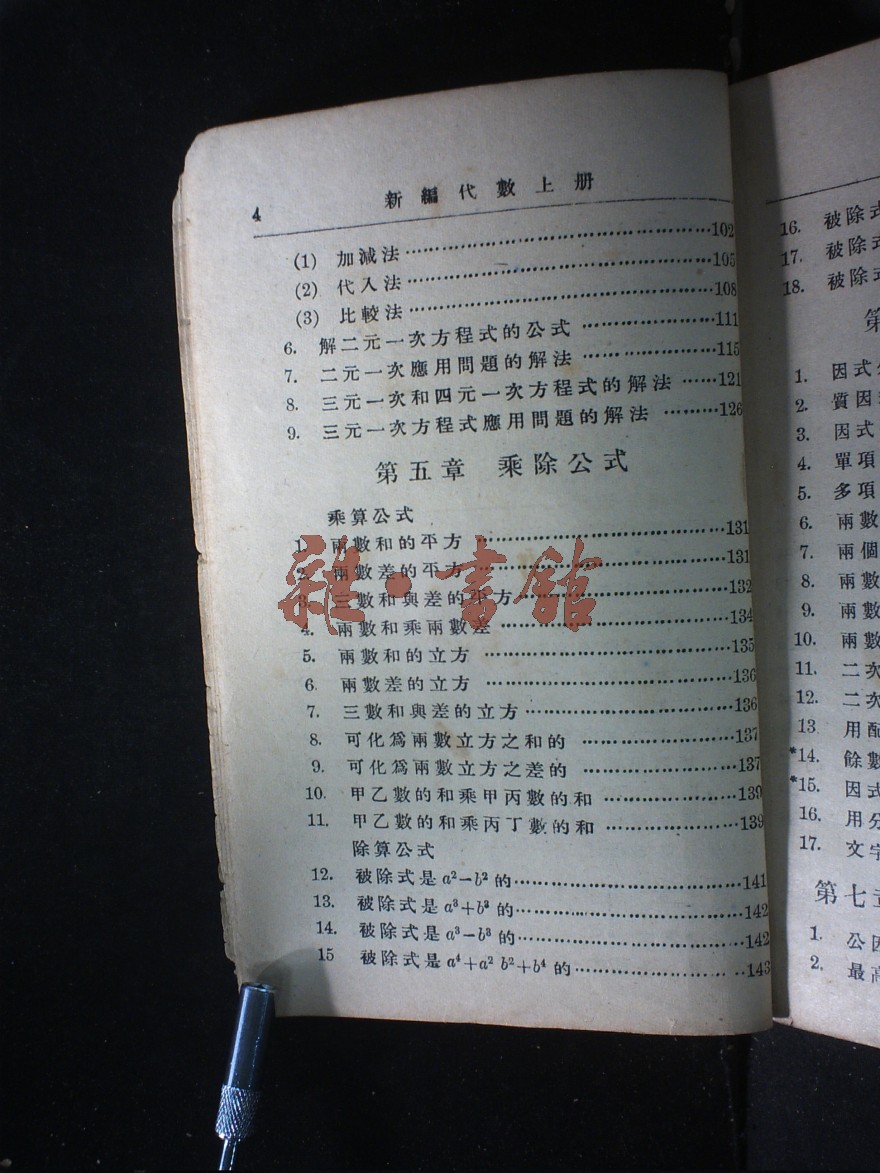 4 新編代數上册
(1) 加減法……102
(2) 代入法……105
(3) 比較法……108
6. 解二元一次方程式的公式……111
7. 二元一次應用問題的解法……115
8. 三元一次和四元一次方程式的解法……121
9. 三元一次方程式應用問題的解法……126
第五章 乘除公式
乘算公式
1. 兩數和的平方……131
2. 兩數差的平方……131
3. 三數和與差的平方……132
4. 兩數和乘兩數差……134
5. 兩數和的立方……135
6. 兩數差的立方……136
7. 三數和與差的立方……136
8. 可化爲兩數立方之和的……137
9. 可化爲兩數立方之差的……137
10. 甲乙數的和乘甲丙數的和……139
11. 甲乙數的和乘丙丁數的和……139
除算公式
12. 被除式是a²−b²的……141
13. 被除式是a³+b³的……142
14. 被除式是a³−b³的……142
15 被除式是a⁴+a² b²+b⁴的……143
雜·書館
16. 被除式
17. 被除式
18. 被除式
第
1. 因式
2. 質因
3. 因式
4. 單項
5. 多項
6. 兩數
7. 兩個
8. 兩數
9. 兩數
10. 兩數
11. 二次
12. 二次
13 用配
*14. 餘數
*15. 因式
16. 用分
17. 文字
第七章
1. 公因
2. 最高